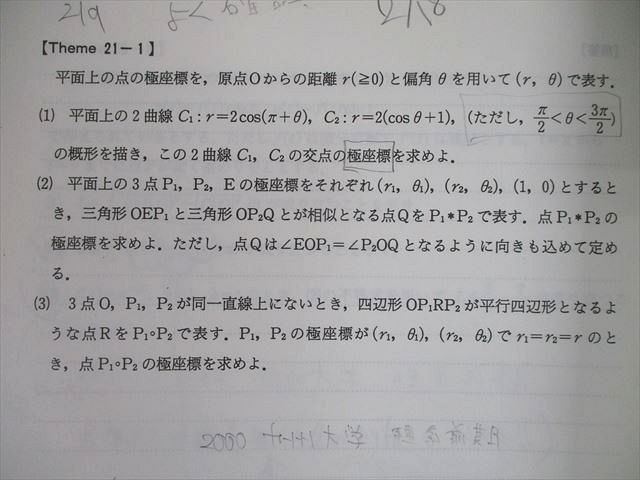 【Theme 21-1】
平面上の点の極座標を，原点Oからの距離 r(≧0) と偏角 θ を用いて (r, θ) で表す．
(1) 平面上の2曲線 C₁：r＝2cos(π＋θ), C₂：r＝2(cos θ＋1), (ただし, π/2＜θ＜3π/2)
の概形を描き，この2曲線 C₁, C₂ の交点の極座標を求めよ．
(2) 平面上の3点 P₁, P₂, E の極座標をそれぞれ (r₁, θ₁), (r₂, θ₂), (1, 0) とすると
き，三角形 OEP₁ と三角形 OP₂Q とが相似となる点Qを P₁*P₂ で表す．点 P₁*P₂ の
極座標を求めよ．ただし，点Qは∠EOP₁＝∠P₂OQ となるように向きも込めて定め
る．
(3) 3点 O, P₁, P₂ が同一直線上にないとき，四辺形 OP₁RP₂ が平行四辺形となるよ
うな点Rを P₁∘P₂ で表す．P₁, P₂ の極座標が (r₁, θ₁), (r₂, θ₂) で r₁＝r₂＝r のと
き，点 P₁∘P₂ の極座標を求めよ．
2000 大学